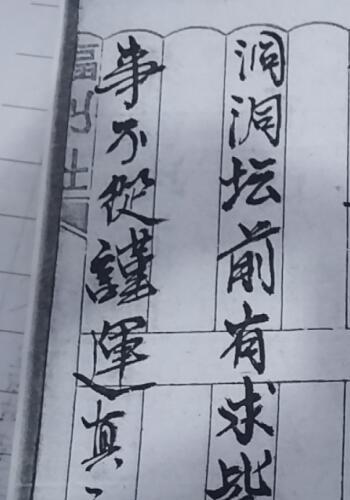 洞洞坛前有求
事不從謹運真